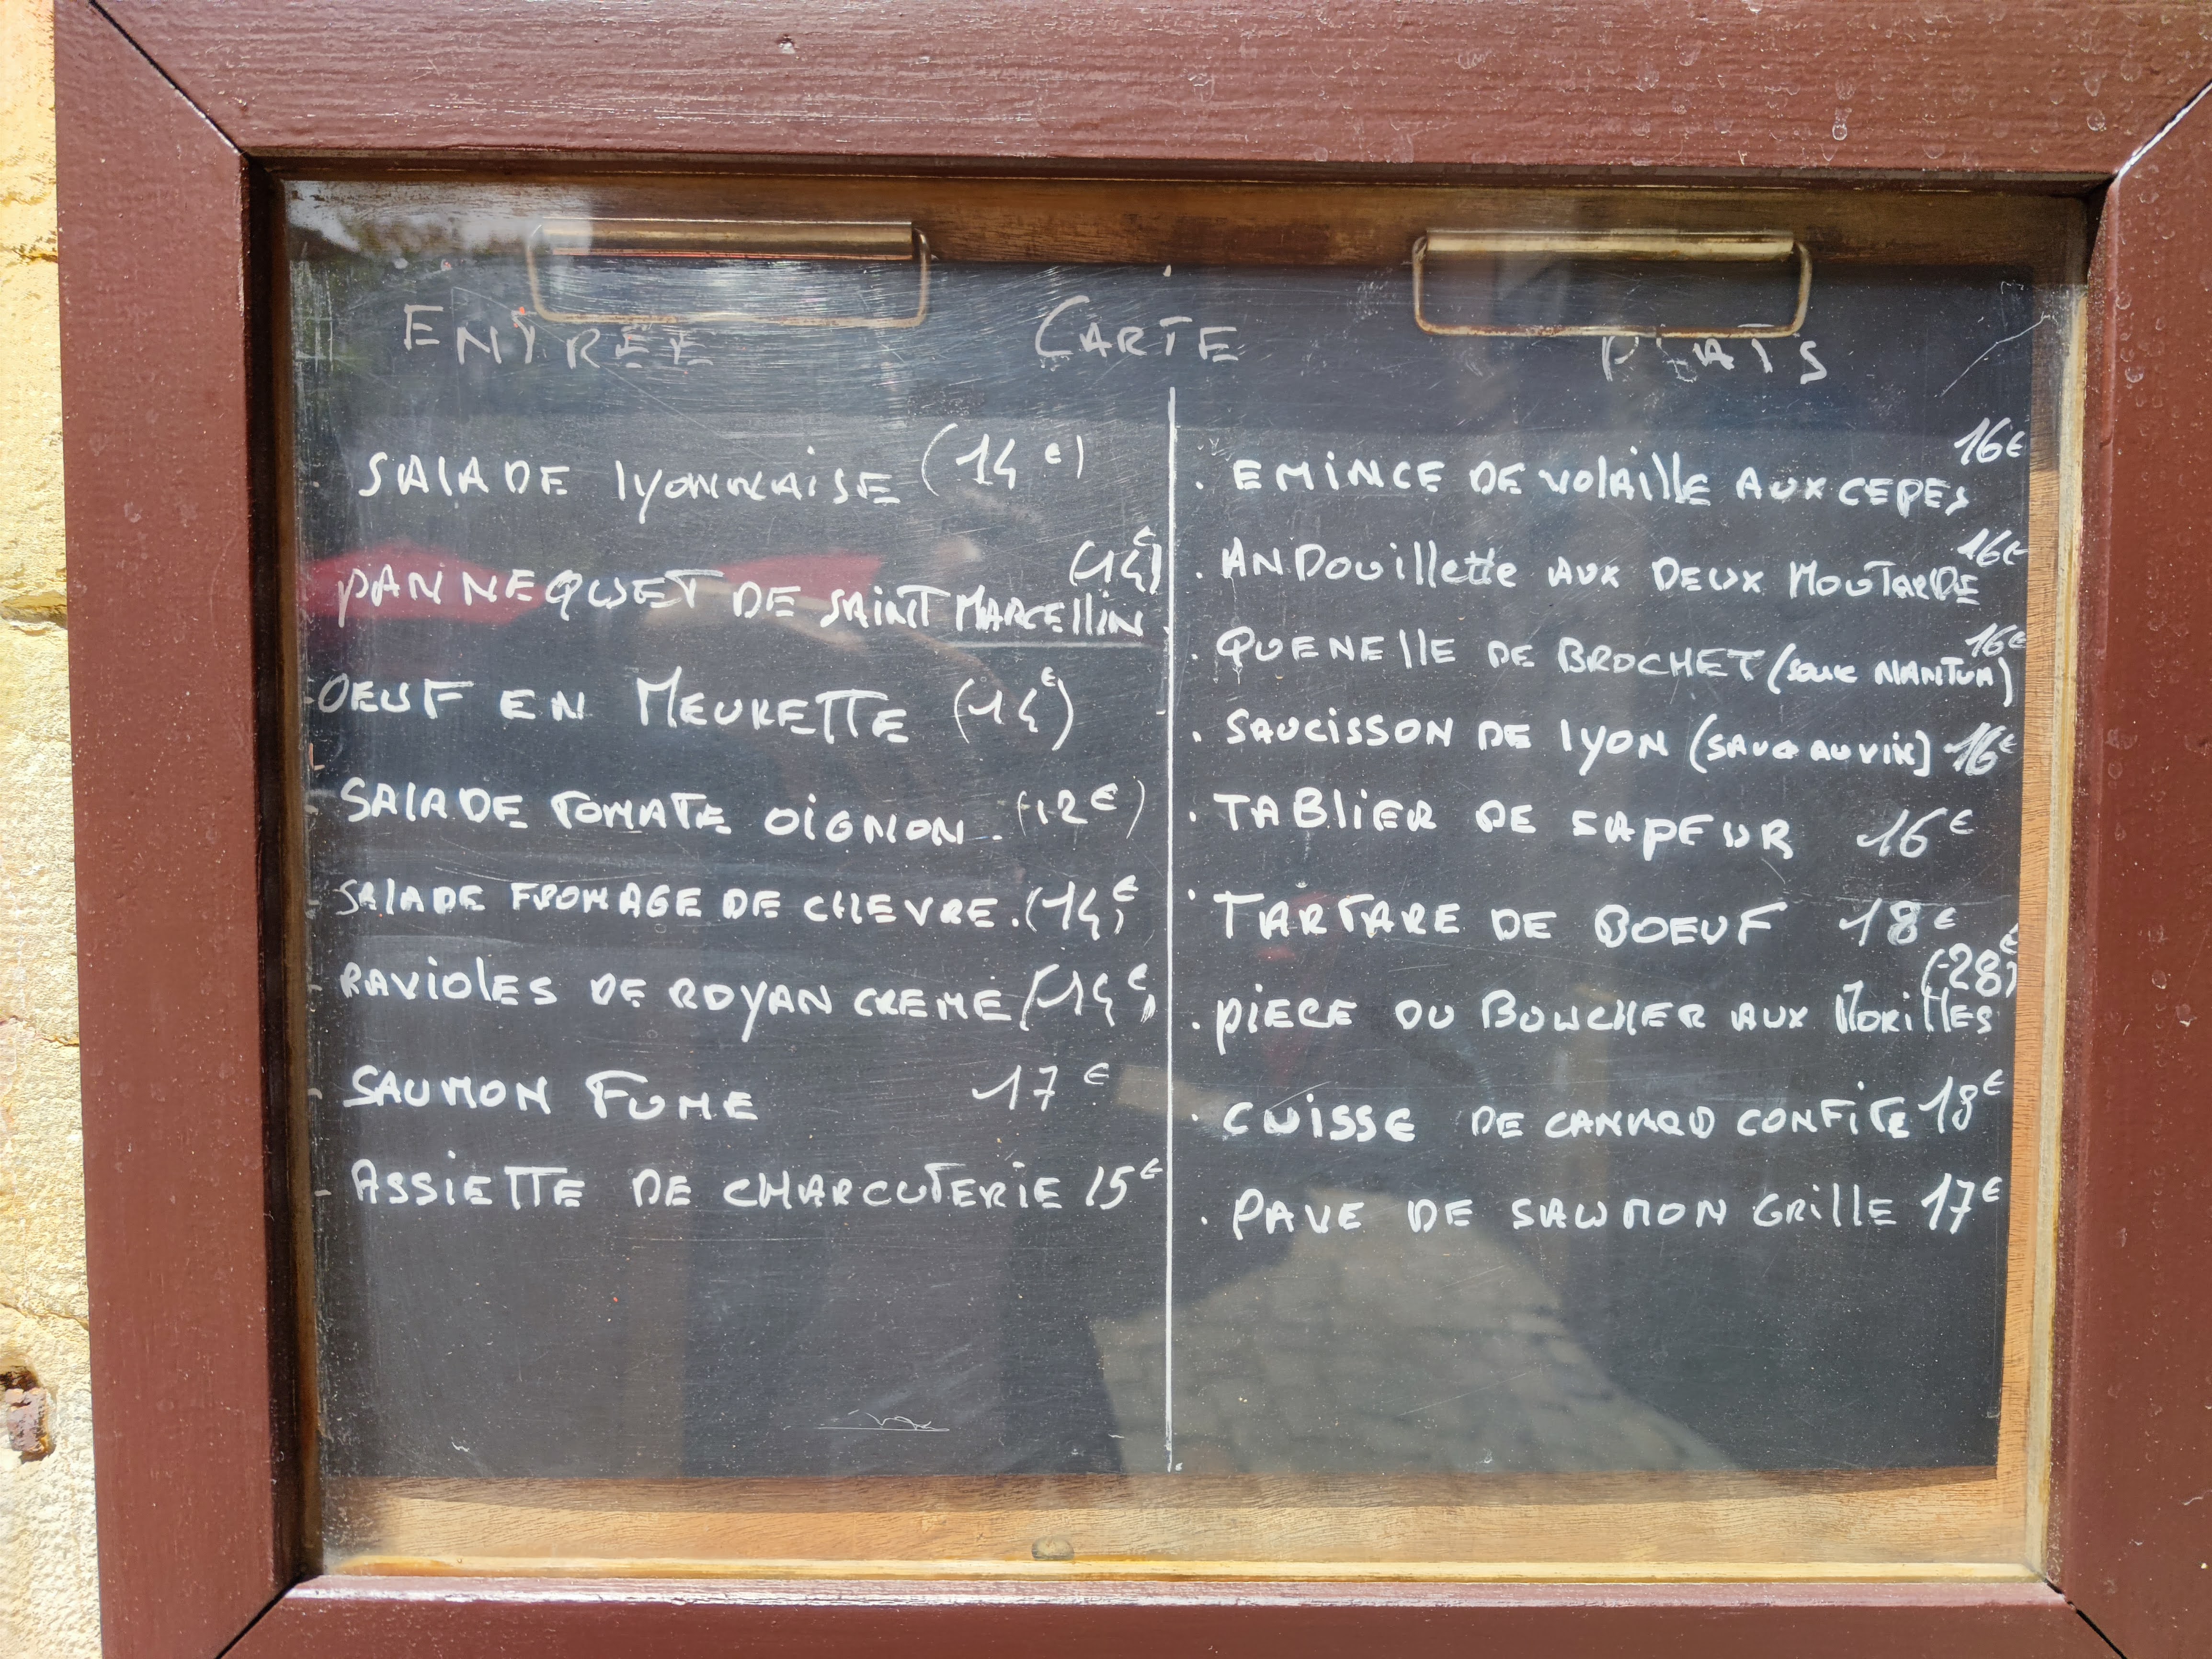 ENTRÉE CARTE PLATS
SALADE LYONNAISE (14€)
PANNEQUET DE SAINT MARCELLIN (14€)
OEUF EN MEURETTE (14€)
SALADE TOMATE OIGNON. (12€)
SALADE FROMAGE DE CHEVRE. (14€)
RAVIOLES DE ROYAN CREME (14€)
SAUMON FUME 17€
ASSIETTE DE CHARCUTERIE 15€
EMINCE DE VOLAILLE AUX CEPES 16€
ANDOUILLETTE AUX DEUX MOUTARDE 16€
QUENELLE DE BROCHET (SAUCE NANTUA) 16€
SAUCISSON DE LYON (SAUCE AU VIN) 16€
TABLIER DE SAPEUR 16€
TARTARE DE BOEUF 18€
PIECE DU BOUCHER AUX MORILLES (28€)
CUISSE DE CANARD CONFITE 18€
PAVE DE SAUMON GRILLE 17€